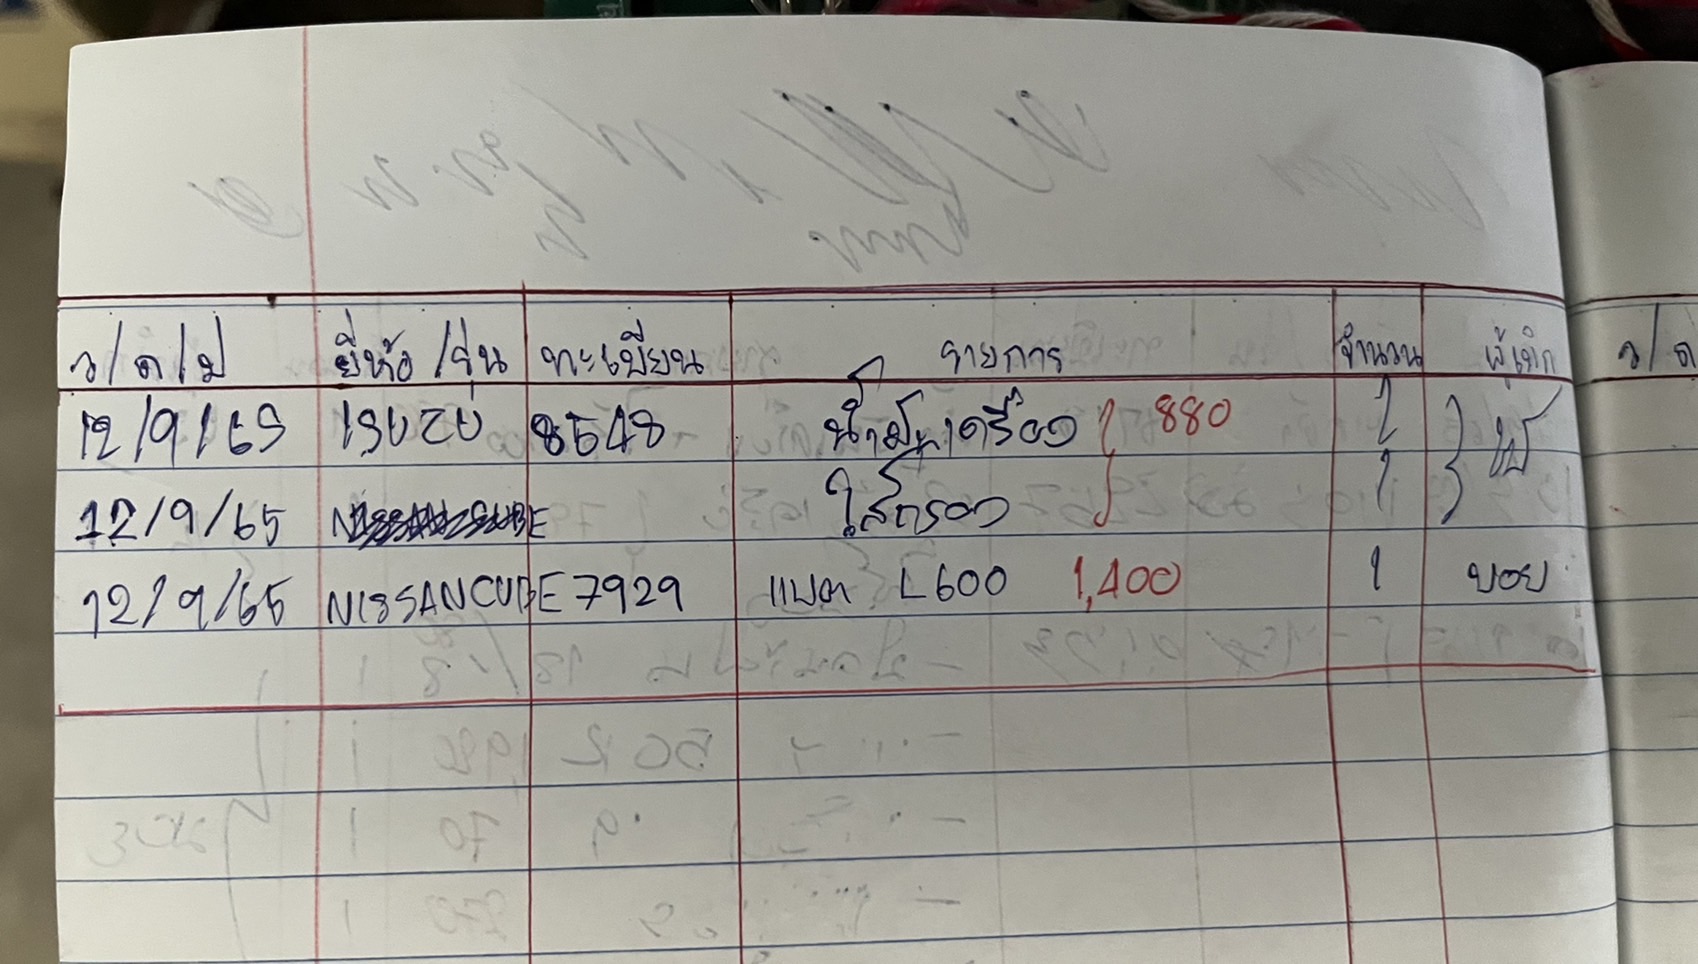 ว/ด/ป ยี่ห้อ/รุ่น ทะเบียน รายการ จำนวน ผู้เบิก ว/ด
12/9/65 ISUZU 8548 น้ำมันเครื่อง 880 1
12/9/65 ไส้กรอง 1
12/9/65 NISSANCUBE 7929 แบต L600 1,400 1 บอย